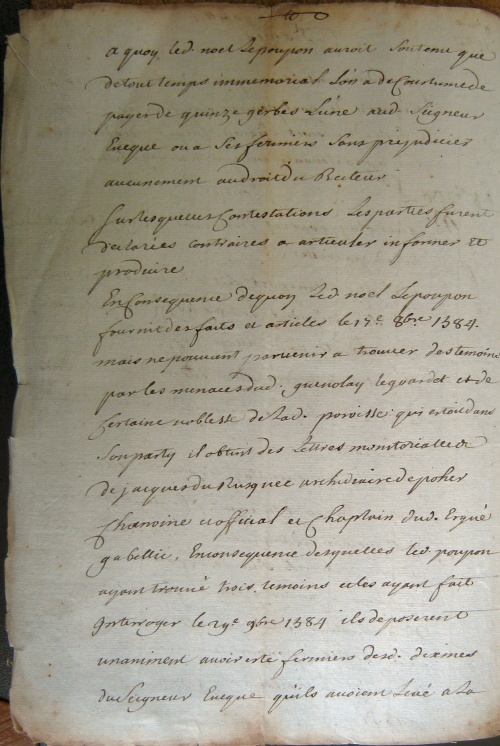 a quoy led. noel Lepoupon auroit soutenu que
de tout temps immemorial l'on a de Coustume de
payer de quinze gerbes l'une aud Seigneur
Eveque ou a ses fermiers sans prejudicier
aucunement au droit du Recteur
Sur lesquelles Contestations les parties furent
declarées contraires a articuler informer et
produire
En Consequence de quoy led noel Lepoupon
fournit des faits et articles le 17e 8bre 1584.
mais ne pouvant parvenir a trouver des temoins
par les menaces dud. guenolay leguardet et de
Certaine noblesse de lad. paroisse qui estoit dans
son party il obtint des lettres monitorialle de
de jacques du Rusquec archidiacre de poher
Chanoine et official et Chaptain dud. Ergué
gabellic, Enconsequence desquelles led poupon
ayant trouvé trois temoins et les ayant fait
Interroger le 29e 9bre 1584 ils deposerent
unaniment avoir esté fermiers desd. dixmes
du Seigneur Eveque qu'ils avoient Levé a la